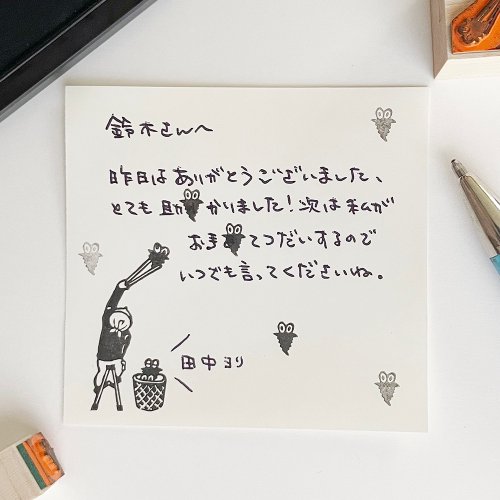 鈴木さんへ
昨日はありがとうございました、
とても助かりました！次は私が
お手てつだいするので
いつでも言ってくださいね。
田中より